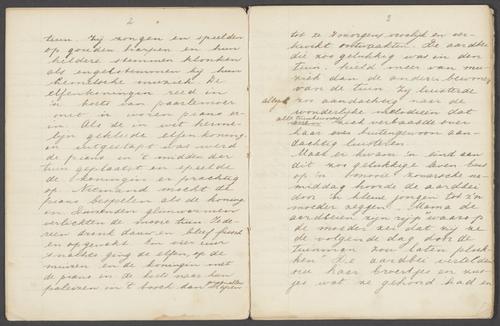 2
tuin. Zij zongen en speelden
op gouden harpen en hun
heldere stemmen klonken
als engelstemmen bij hun
hemelsche muziek. De
elfenkoningin reed in
'n koets van paarlemoer
met 'n ivoren piano er
in. Als de in wit
gekleede elfenkoning-
in uitgestapt was werd
de piano in 't midden der
tuin geplaatst en speelde
de koningin er prachtig
op. Niemand mocht de
piano bespelen als de konin-
gin. Duizenden glimwormen
verlichtten de tuin. Ieder-
een dronk dauw en bleef frisch
en opgewekt. Om vier uur
's nachts ging de elfen, op de
muizen en de koningin met
de piano in de koets naar hun
paleizen in 't bosch dan
3
tot ze 's morgens vroolijk en ver-
kwikt ontwaakten. De aardbei
die zoo gelukkig was in den
tuin, hield meer van mu-
ziek dan de andere bewoners
van de tuin. Zij luisterde
altijd zoo aandachtig naar de
wonderlijke melodieën dat
alle tuinbewoners
zich verbaasde over
haar buitengewoon aan-
dachtig luisteren.
Maar er kwam 'n eind aan
dit zoo gelukkige leven dus
op 'n mooie zomersche na-
middag hoorde de aardbei
door 'n kleine jongen tot z'n
moeder zeggen: "Mama de
aardbeien zijn rijp" waarop
de moeder zei dat zij ze
de volgende dag door de
tuinman zou laten pluk-
ken. De aardbei vertelde
nu haar broertjes en zus-
jes wat ze gehoord had en